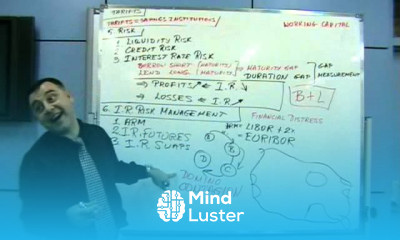 THRIFTS
THRIFTS = SAVINGS INSTITUTIONS
WORKING CAPITAL
5. RISK
1 LIQUIDITY RISK
2 CREDIT RISK
3 INTEREST RATE RISK
BORROW SHORT (MATURITY)
LEND LONG (MATURITY)
→ MATURITY GAP
DURATION GAP
GAP
MEASUREMENT
⇒ PROFITS ← I.R. ↘
⇒ LOSSES ← I.R. ↗
B+L
6. I.R RISK MANAGEMENT
1 ARM
2 I.R. FUTURES
3 I.R. SWAPS
FINANCIAL DISTRESS
LIBOR + 2%
EURIBOR
B
D
C
DOMINO
CONTAGION
Mind
Luster